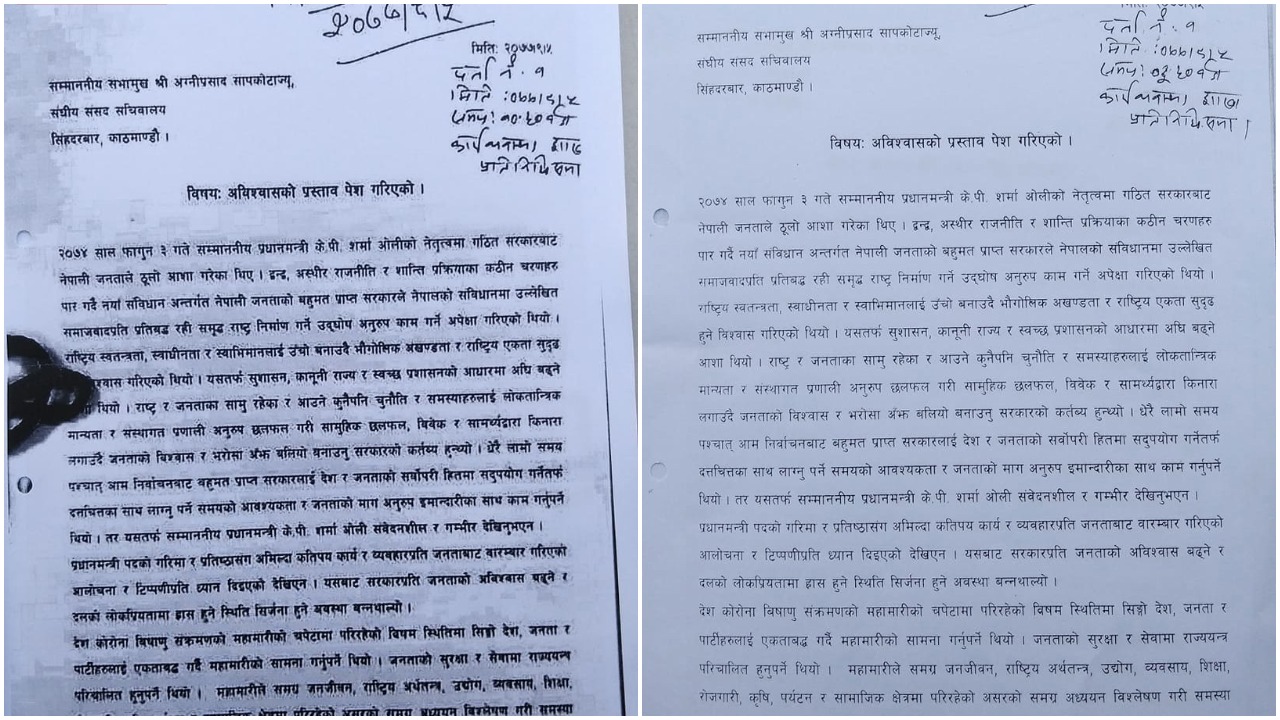 २०७७/९/५
मितिः २०७७/९/५
सम्माननीय सभामुख श्री अग्नीप्रसाद सापकोटाज्यू,
संघीय संसद सचिवालय
सिंहदरबार, काठमाण्डौ ।
दर्ता नं. १
मिति :०७७/९/५
समय: १०:५० बजे
प्रतिनिधि सभा
विषयः अविश्वासको प्रस्ताव पेश गरिएको ।
२०७४ साल फागुन ३ गते सम्माननीय प्रधानमन्त्री के.पी. शर्मा ओलीको नेतृत्वमा गठित सरकारबाट
नेपाली जनताले ठूलो आशा गरेका थिए । द्वन्द्व, अस्थीर राजनीति र शान्ति प्रक्रियाका कठीन चरणहरु
पार गर्दै नयाँ संविधान अन्तर्गत नेपाली जनताको बहुमत प्राप्त सरकारले नेपालको संविधानमा उल्लेखित
समाजवादप्रति प्रतिबद्ध रही समृद्ध राष्ट्र निर्माण गर्ने उद्घोष अनुरुप काम गर्ने अपेक्षा गरिएको थियो ।
राष्ट्रिय स्वतन्त्रता, स्वाधीनता र स्वाभिमानलाई उँचो बनाउदै भौगोलिक अखण्डता र राष्ट्रिय एकता सुदृढ
विश्वास गरिएको थियो । यसतर्फ सुशासन, कानूनी राज्य र स्वच्छ प्रशासनको आधारमा अघि बढ्ने
थियो । राष्ट्र र जनताका सामु रहेका र आउने कुनैपनि चुनौति र समस्याहरुलाई लोकतान्त्रिक
मान्यता र संस्थागत प्रणाली अनुरुप छलफल गरी सामुहिक छलफल, विवेक र सामर्थ्यद्वारा किनारा
लगाउँदै जनताको विश्वास र भरोसा अँझ बलियो बनाउनु सरकारको कर्तब्य हुन्थ्यो । धेरै लामो समय
पश्चात् आम निर्वाचनबाट बहुमत प्राप्त सरकारलाई देश र जनताको सर्वोपरी हितमा सदुपयोग गर्नेतर्फ
दत्तचित्तका साथ लाग्नु पर्ने समयको आवश्यकता र जनताको माग अनुरुप इमान्दारीका साथ काम गर्नुपर्ने
थियो । तर यसतर्फ सम्माननीय प्रधानमन्त्री के.पी. शर्मा ओली संवेदनशील र गम्भीर देखिनुभएन ।
प्रधानमन्त्री पदको गरिमा र प्रतिष्ठासंग अमिल्दा कतिपय कार्य र व्यवहारप्रति जनताबाट वारम्बार गरिएको
आलोचना र टिप्पणीप्रति ध्यान दिइएको देखिएन । यसबाट सरकारप्रति जनताको अविश्वास बढ्ने र
दलको लोकप्रियतामा ह्रास हुने स्थिति सिर्जना हुने अवस्था बन्नथाल्यो ।
देश कोरोना बिषाणु संक्रमणको महामारीको चपेटामा परिरहेको बिषम स्थितिमा सिङ्गो देश, जनता र
पार्टीहरुलाई एकताबद्ध गर्दै महामारीको सामना गर्नुपर्ने थियो । जनताको सुरक्षा र सेवामा राज्ययन्त्र
परिचालित हुनुपर्ने थियो । महामारीले समग्र जनजीवन, राष्ट्रिय अर्थतन्त्र, उद्योग, व्यवसाय, शिक्षा,
सम्माननीय सभामुख श्री अग्नीप्रसाद सापकोटाज्यू,
संघीय संसद सचिवालय
सिंहदरबार, काठमाण्डौ ।
दर्ता नं. १
मिति :०७७/९/५
प्रतिनिधि सभा ।
विषयः अविश्वासको प्रस्ताव पेश गरिएको ।
२०७४ साल फागुन ३ गते सम्माननीय प्रधानमन्त्री के.पी. शर्मा ओलीको नेतृत्वमा गठित सरकारबाट
नेपाली जनताले ठूलो आशा गरेका थिए । द्वन्द्व, अस्थीर राजनीति र शान्ति प्रक्रियाका कठीन चरणहरु
पार गर्दै नयाँ संविधान अन्तर्गत नेपाली जनताको बहुमत प्राप्त सरकारले नेपालको संविधानमा उल्लेखित
समाजवादप्रति प्रतिबद्ध रही समृद्ध राष्ट्र निर्माण गर्ने उद्घोष अनुरुप काम गर्ने अपेक्षा गरिएको थियो ।
राष्ट्रिय स्वतन्त्रता, स्वाधीनता र स्वाभिमानलाई उँचो बनाउदै भौगोलिक अखण्डता र राष्ट्रिय एकता सुदृढ
हुने विश्वास गरिएको थियो । यसतर्फ सुशासन, कानूनी राज्य र स्वच्छ प्रशासनको आधारमा अघि बढ्ने
आशा थियो । राष्ट्र र जनताका सामु रहेका र आउने कुनैपनि चुनौति र समस्याहरुलाई लोकतान्त्रिक
मान्यता र संस्थागत प्रणाली अनुरुप छलफल गरी सामुहिक छलफल, विवेक र सामर्थ्यद्वारा किनारा
लगाउँदै जनताको विश्वास र भरोसा अँझ बलियो बनाउनु सरकारको कर्तब्य हुन्थ्यो । धेरै लामो समय
पश्चात् आम निर्वाचनबाट बहुमत प्राप्त सरकारलाई देश र जनताको सर्वोपरी हितमा सदुपयोग गर्नेतर्फ
दत्तचित्तका साथ लाग्नु पर्ने समयको आवश्यकता र जनताको माग अनुरुप इमान्दारीका साथ काम गर्नुपर्ने
थियो । तर यसतर्फ सम्माननीय प्रधानमन्त्री के.पी. शर्मा ओली संवेदनशील र गम्भीर देखिनुभएन ।
प्रधानमन्त्री पदको गरिमा र प्रतिष्ठासंग अमिल्दा कतिपय कार्य र व्यवहारप्रति जनताबाट वारम्बार गरिएको
आलोचना र टिप्पणीप्रति ध्यान दिइएको देखिएन । यसबाट सरकारप्रति जनताको अविश्वास बढ्ने र
दलको लोकप्रियतामा ह्रास हुने स्थिति सिर्जना हुने अवस्था बन्नथाल्यो ।
देश कोरोना बिषाणु संक्रमणको महामारीको चपेटामा परिरहेको बिषम स्थितिमा सिङ्गो देश, जनता र
पार्टीहरुलाई एकताबद्ध गर्दै महामारीको सामना गर्नुपर्ने थियो । जनताको सुरक्षा र सेवामा राज्ययन्त्र
परिचालित हुनुपर्ने थियो । महामारीले समग्र जनजीवन, राष्ट्रिय अर्थतन्त्र, उद्योग, व्यवसाय, शिक्षा,
रोजगारी, कृषि, पर्यटन र सामाजिक क्षेत्रमा परिरहेको असरको समग्र अध्ययन विश्लेषण गरी समस्या